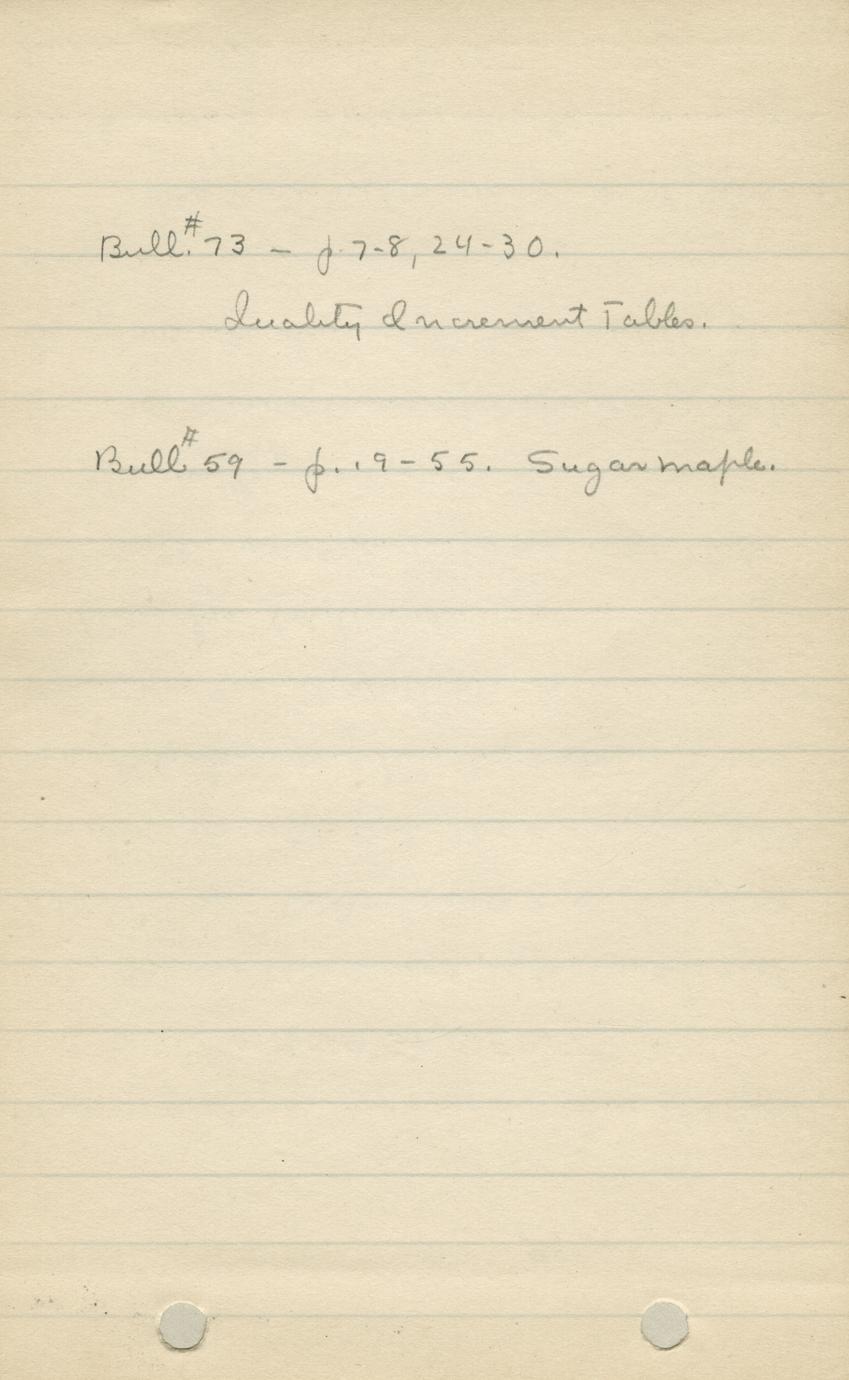 Bull.#73 - p. 7-8, 24-30.
Quality Increment Tables.
Bull.#59 - p. 19-55. Sugar maple.